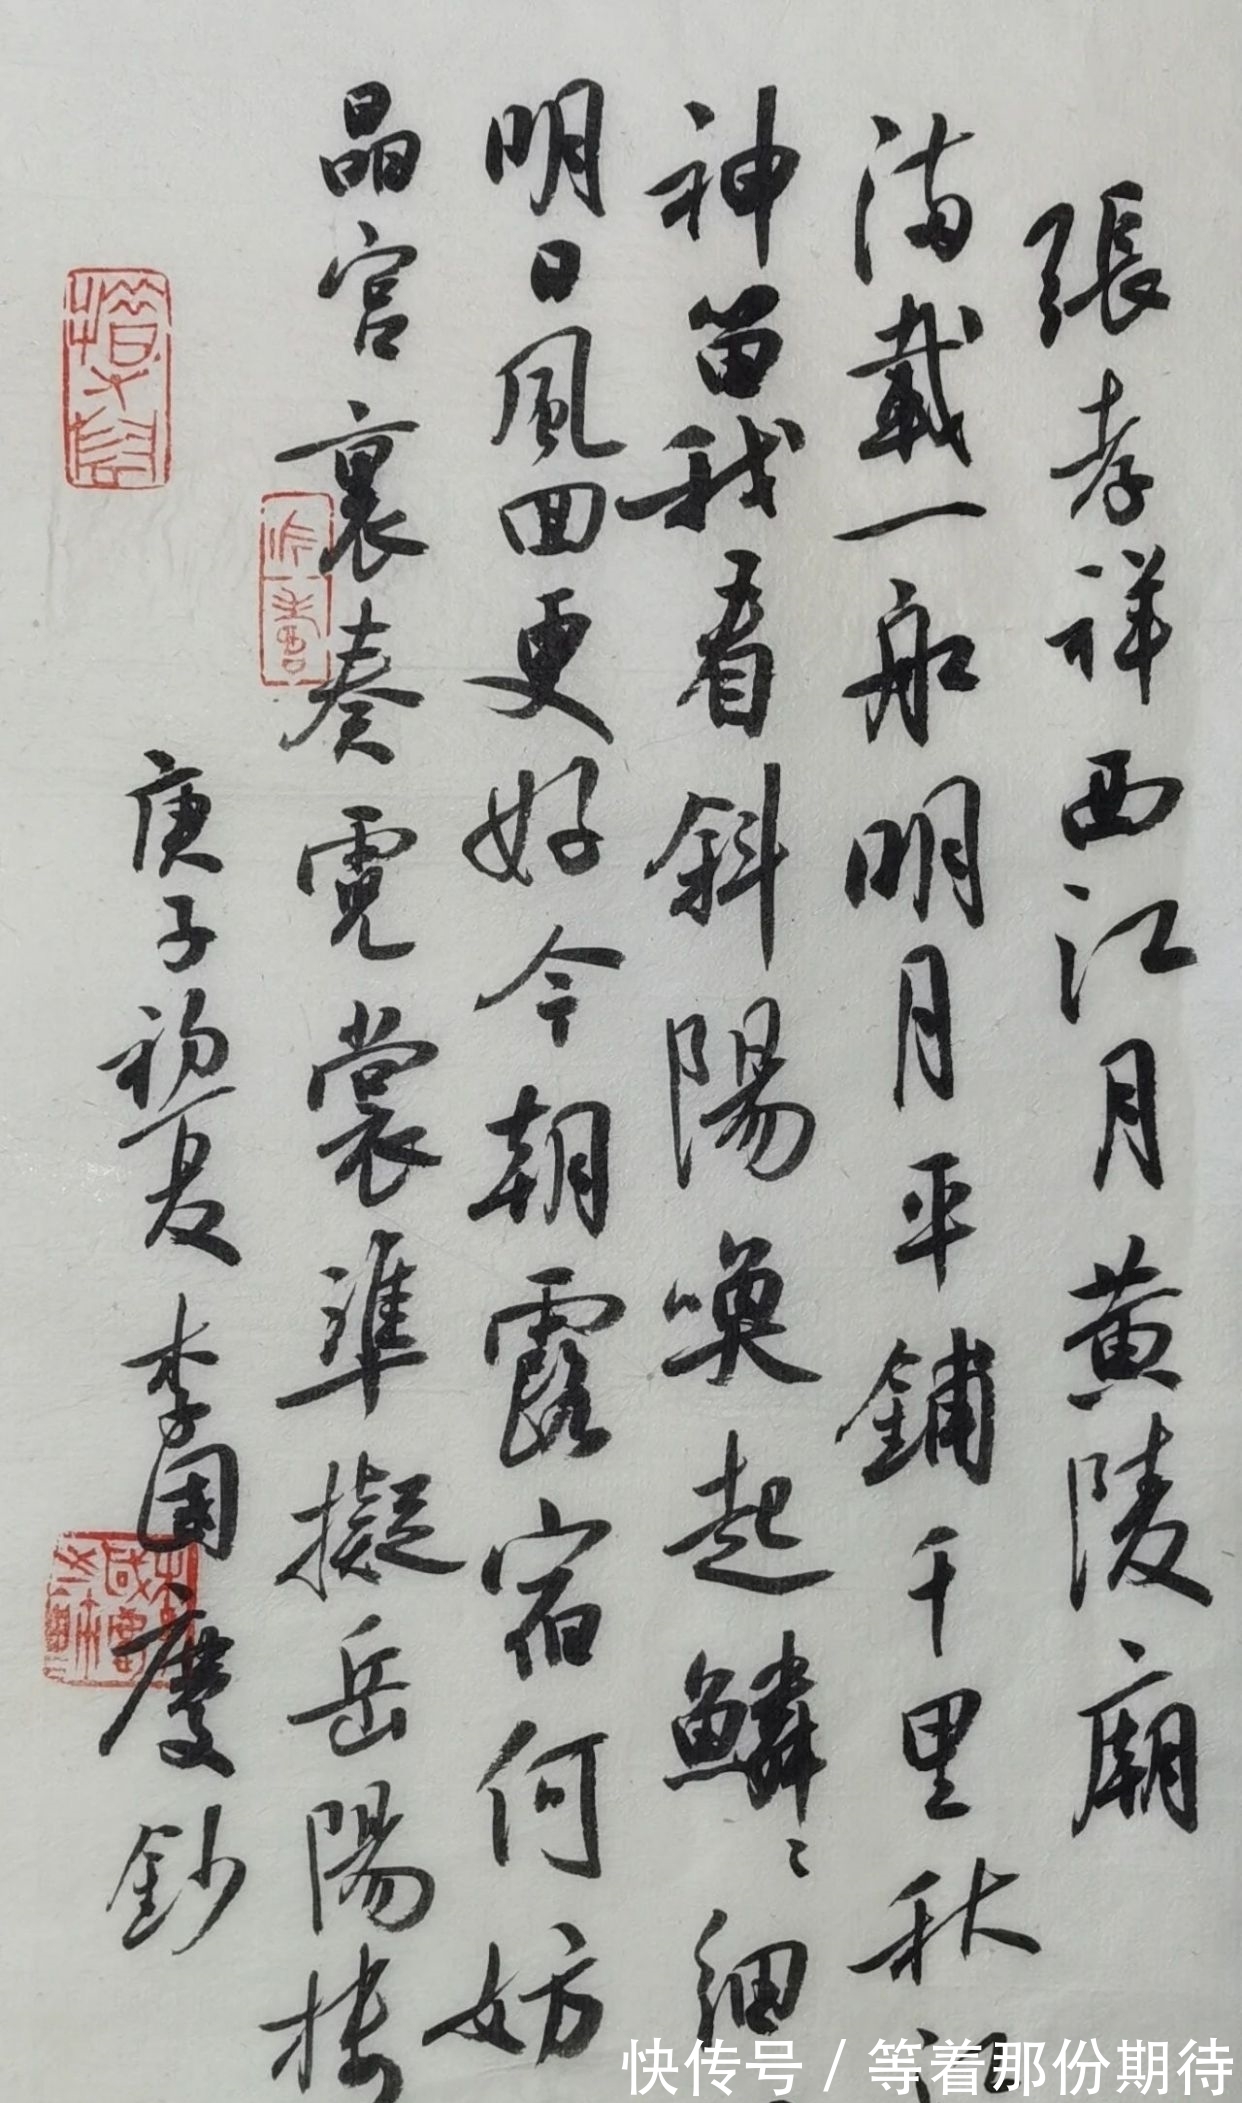 張孝祥西江月黄陵廟
满載一船明月平鋪千里秋江
神留我看斜陽喚起鱗〻細
明日風回更好今朝露宿何妨
晶宫裏奏霓裳準擬岳陽楼
庚子初夏李国慶鈔
快传号/等着那份期待